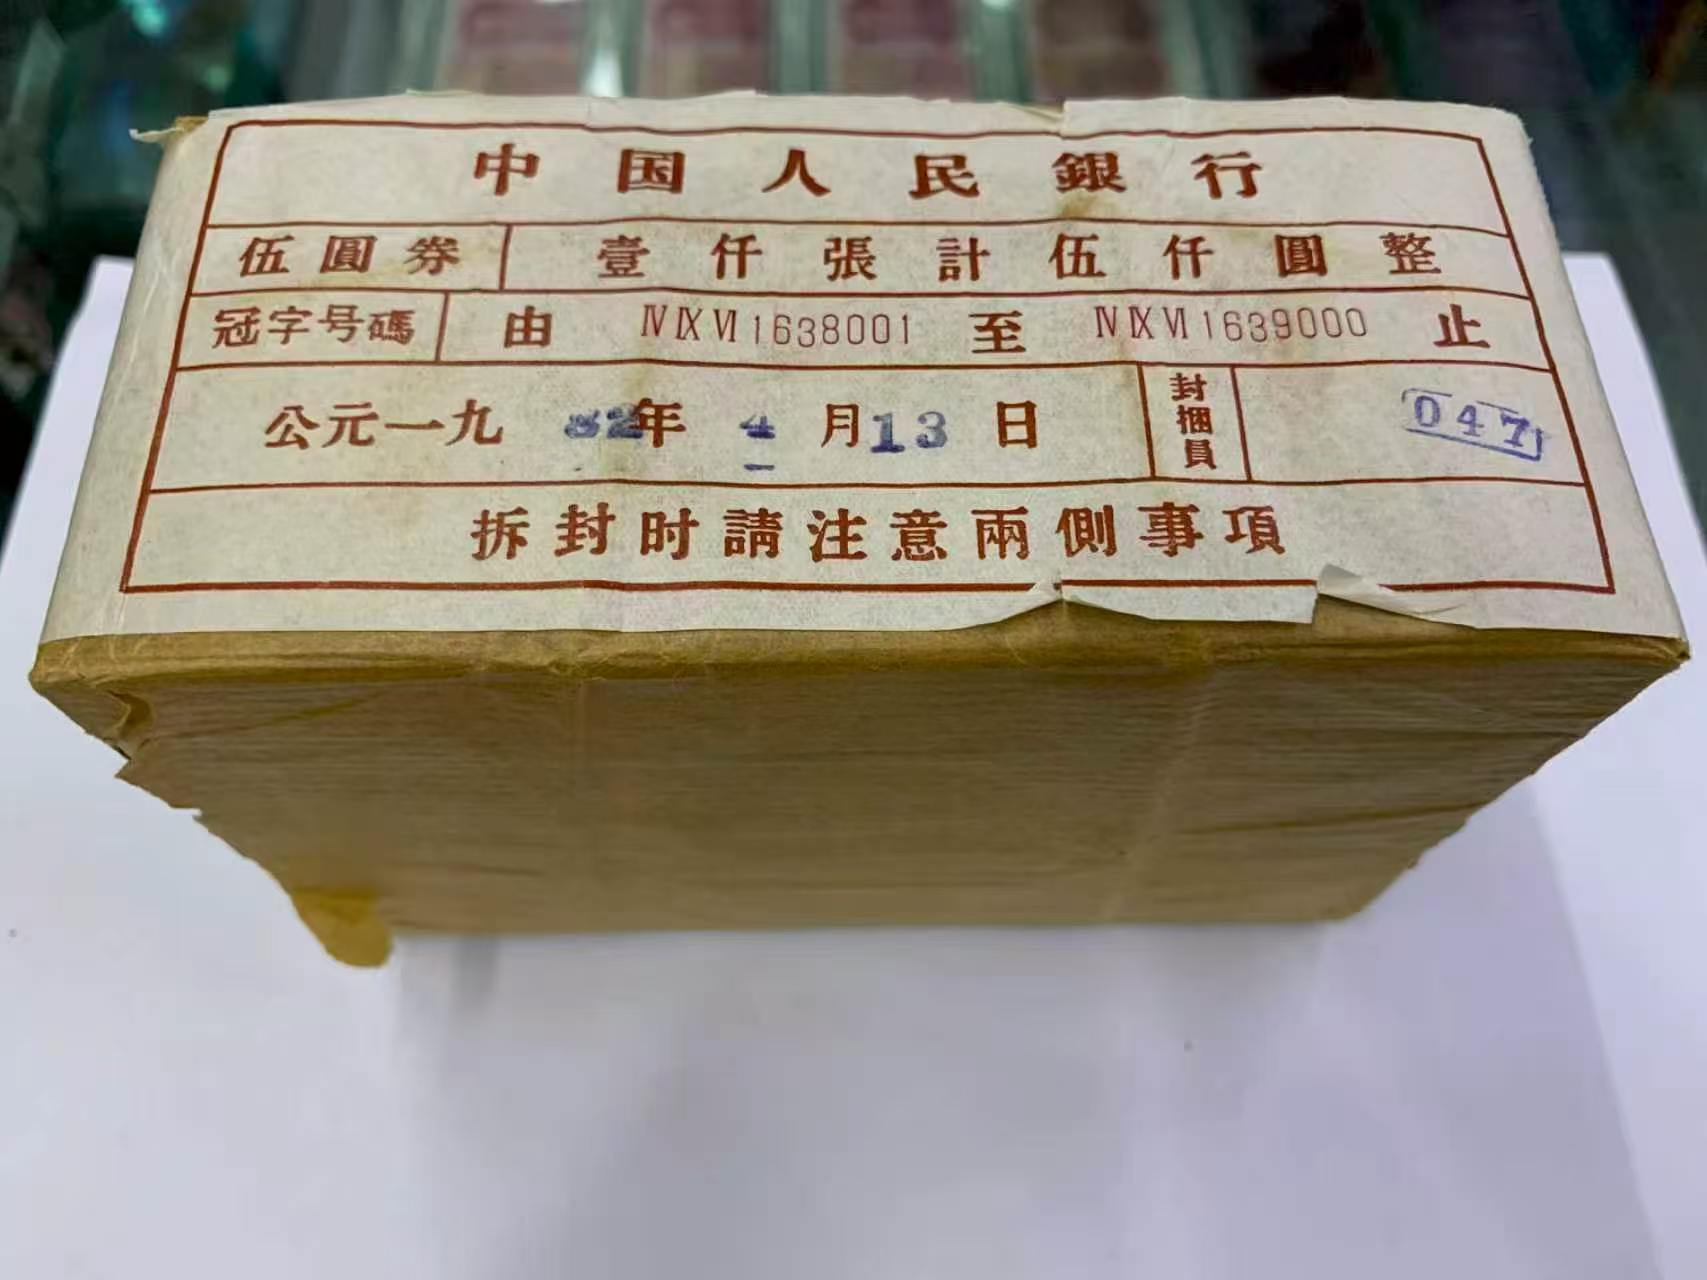 中国人民銀行
伍圓券 壹仟張計伍仟圓整
冠字号碼 由 ⅣⅨⅥ1638001 至 ⅣⅨⅥ1639000 止
公元一九82年4月13日 封捆員 047
拆封时請注意兩側事項